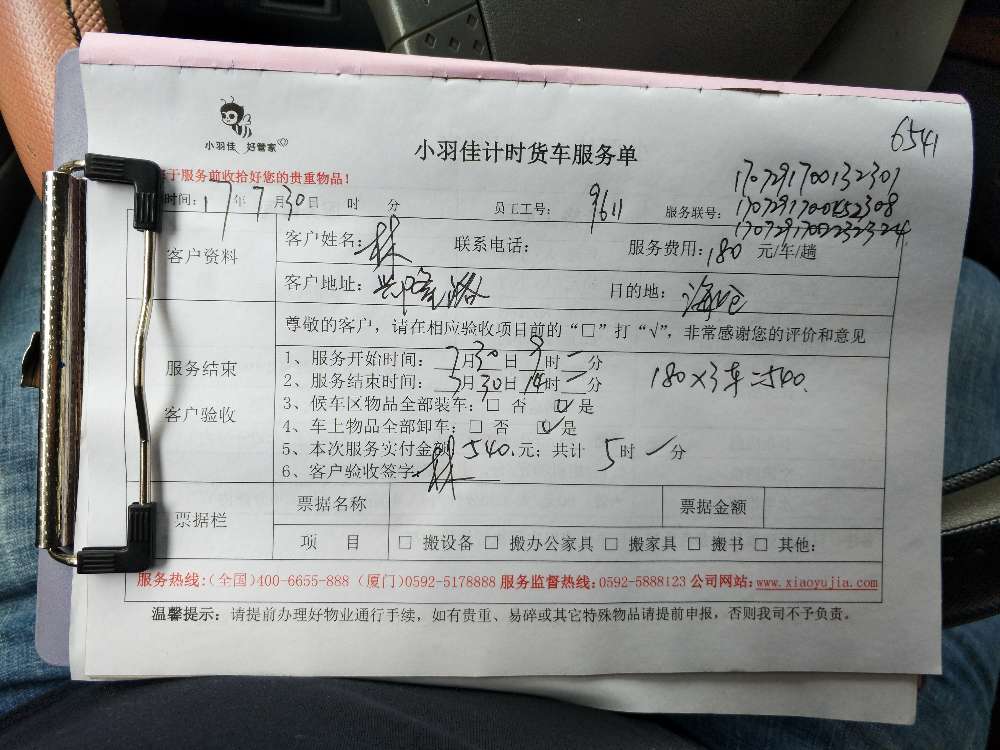 6541
小羽佳 好管家
小羽佳计时货车服务单
于服务前收拾好您的贵重物品！
1707291700132301
时间：17年7月30日 时 分 员工工号：9611 服务联号：
客户资料 客户姓名：林 联系电话： 服务费用：180 元/车/趟
客户地址：兴隆路 目的地：海沧
尊敬的客户，请在相应验收项目前的“□”打“√”，非常感谢您的评价和意见
服务结束
客户验收
1、服务开始时间：7月30日9时一分
2、服务结束时间：7月30日14时一分
180×3车=540.
3、候车区物品全部装车：□ 否 ☑是
4、车上物品全部卸车：□ 否 ☑是
5、本次服务实付金额 540.元；共计 5时一分
6、客户验收签字：林
票据栏 票据名称 票据金额
项 目 □ 搬设备 □ 搬办公家具 □ 搬家具 □ 搬书 □ 其他：
服务热线:(全国)400-6655-888（厦门)0592-5178888 服务监督热线:0592-5888123 公司网站:www.xiaoyujia.com
温馨提示：请提前办理好物业通行手续，如有贵重、易碎或其它特殊物品请提前申报，否则我司不予负责。